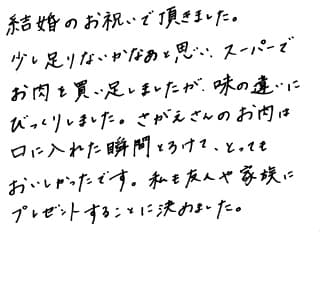 結婚のお祝いで頂きました。
少し足りないかなあと思い、スーパーで
お肉を買い足しましたが、味の違いに
びっくりしました。さがえさんのお肉は
口に入れた瞬間とろけて、とっても
おいしかったです。私も友人や家族に
プレゼントすることに決めました。